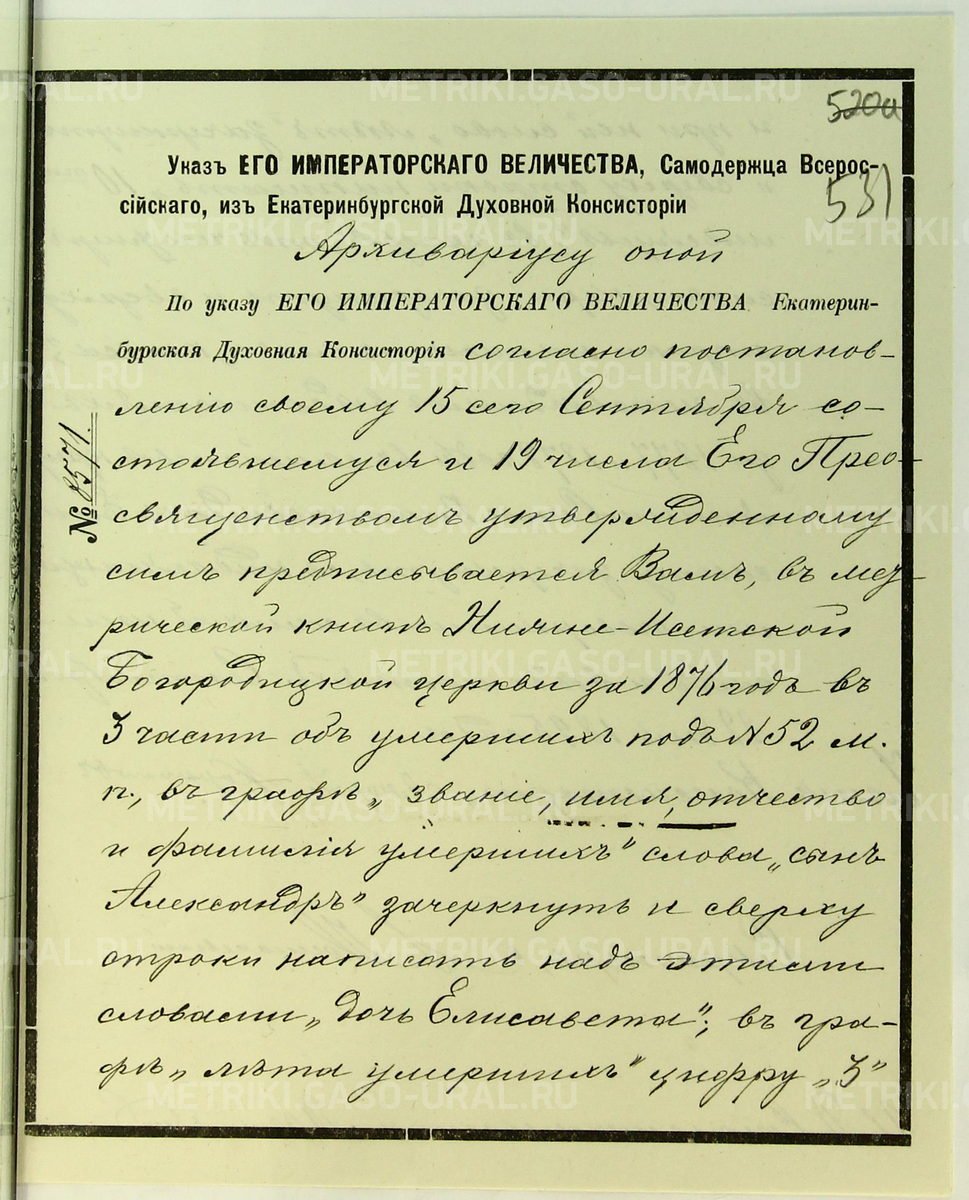 520а
531
Указъ ЕГО ИМПЕРАТОРСКАГО ВЕЛИЧЕСТВА, Самодержца Всерос-
сійскаго, изъ Екатеринбургской Духовной Консисторіи
Архиваріусу оной
По указу ЕГО ИМПЕРАТОРСКАГО ВЕЛИЧЕСТВА Екатерин-
бургская Духовная Консисторія согласно постанов-
лению своему 15 сего Сентября со-
стоявшемуся и 19 числа Его Прео-
священствомъ утвержденному
симъ предписывается Вамъ, въ мет-
рической книгѣ Нижне-Исетской
Богородицкой церкви за 1876 годъ въ
3 части объ умершихъ подъ N 52 м.
п., въ графѣ „званіе, имя, отчество
и фамилія умершихъ" слова „сынъ
Александръ" зачеркнуть и сверху
строки написать надъ этими
словами „дочь Елисавета"; въ гра-
фѣ „лѣта умершихъ" цифру „3"
№ 8571.
METRIKI.GASO-URAL.RU